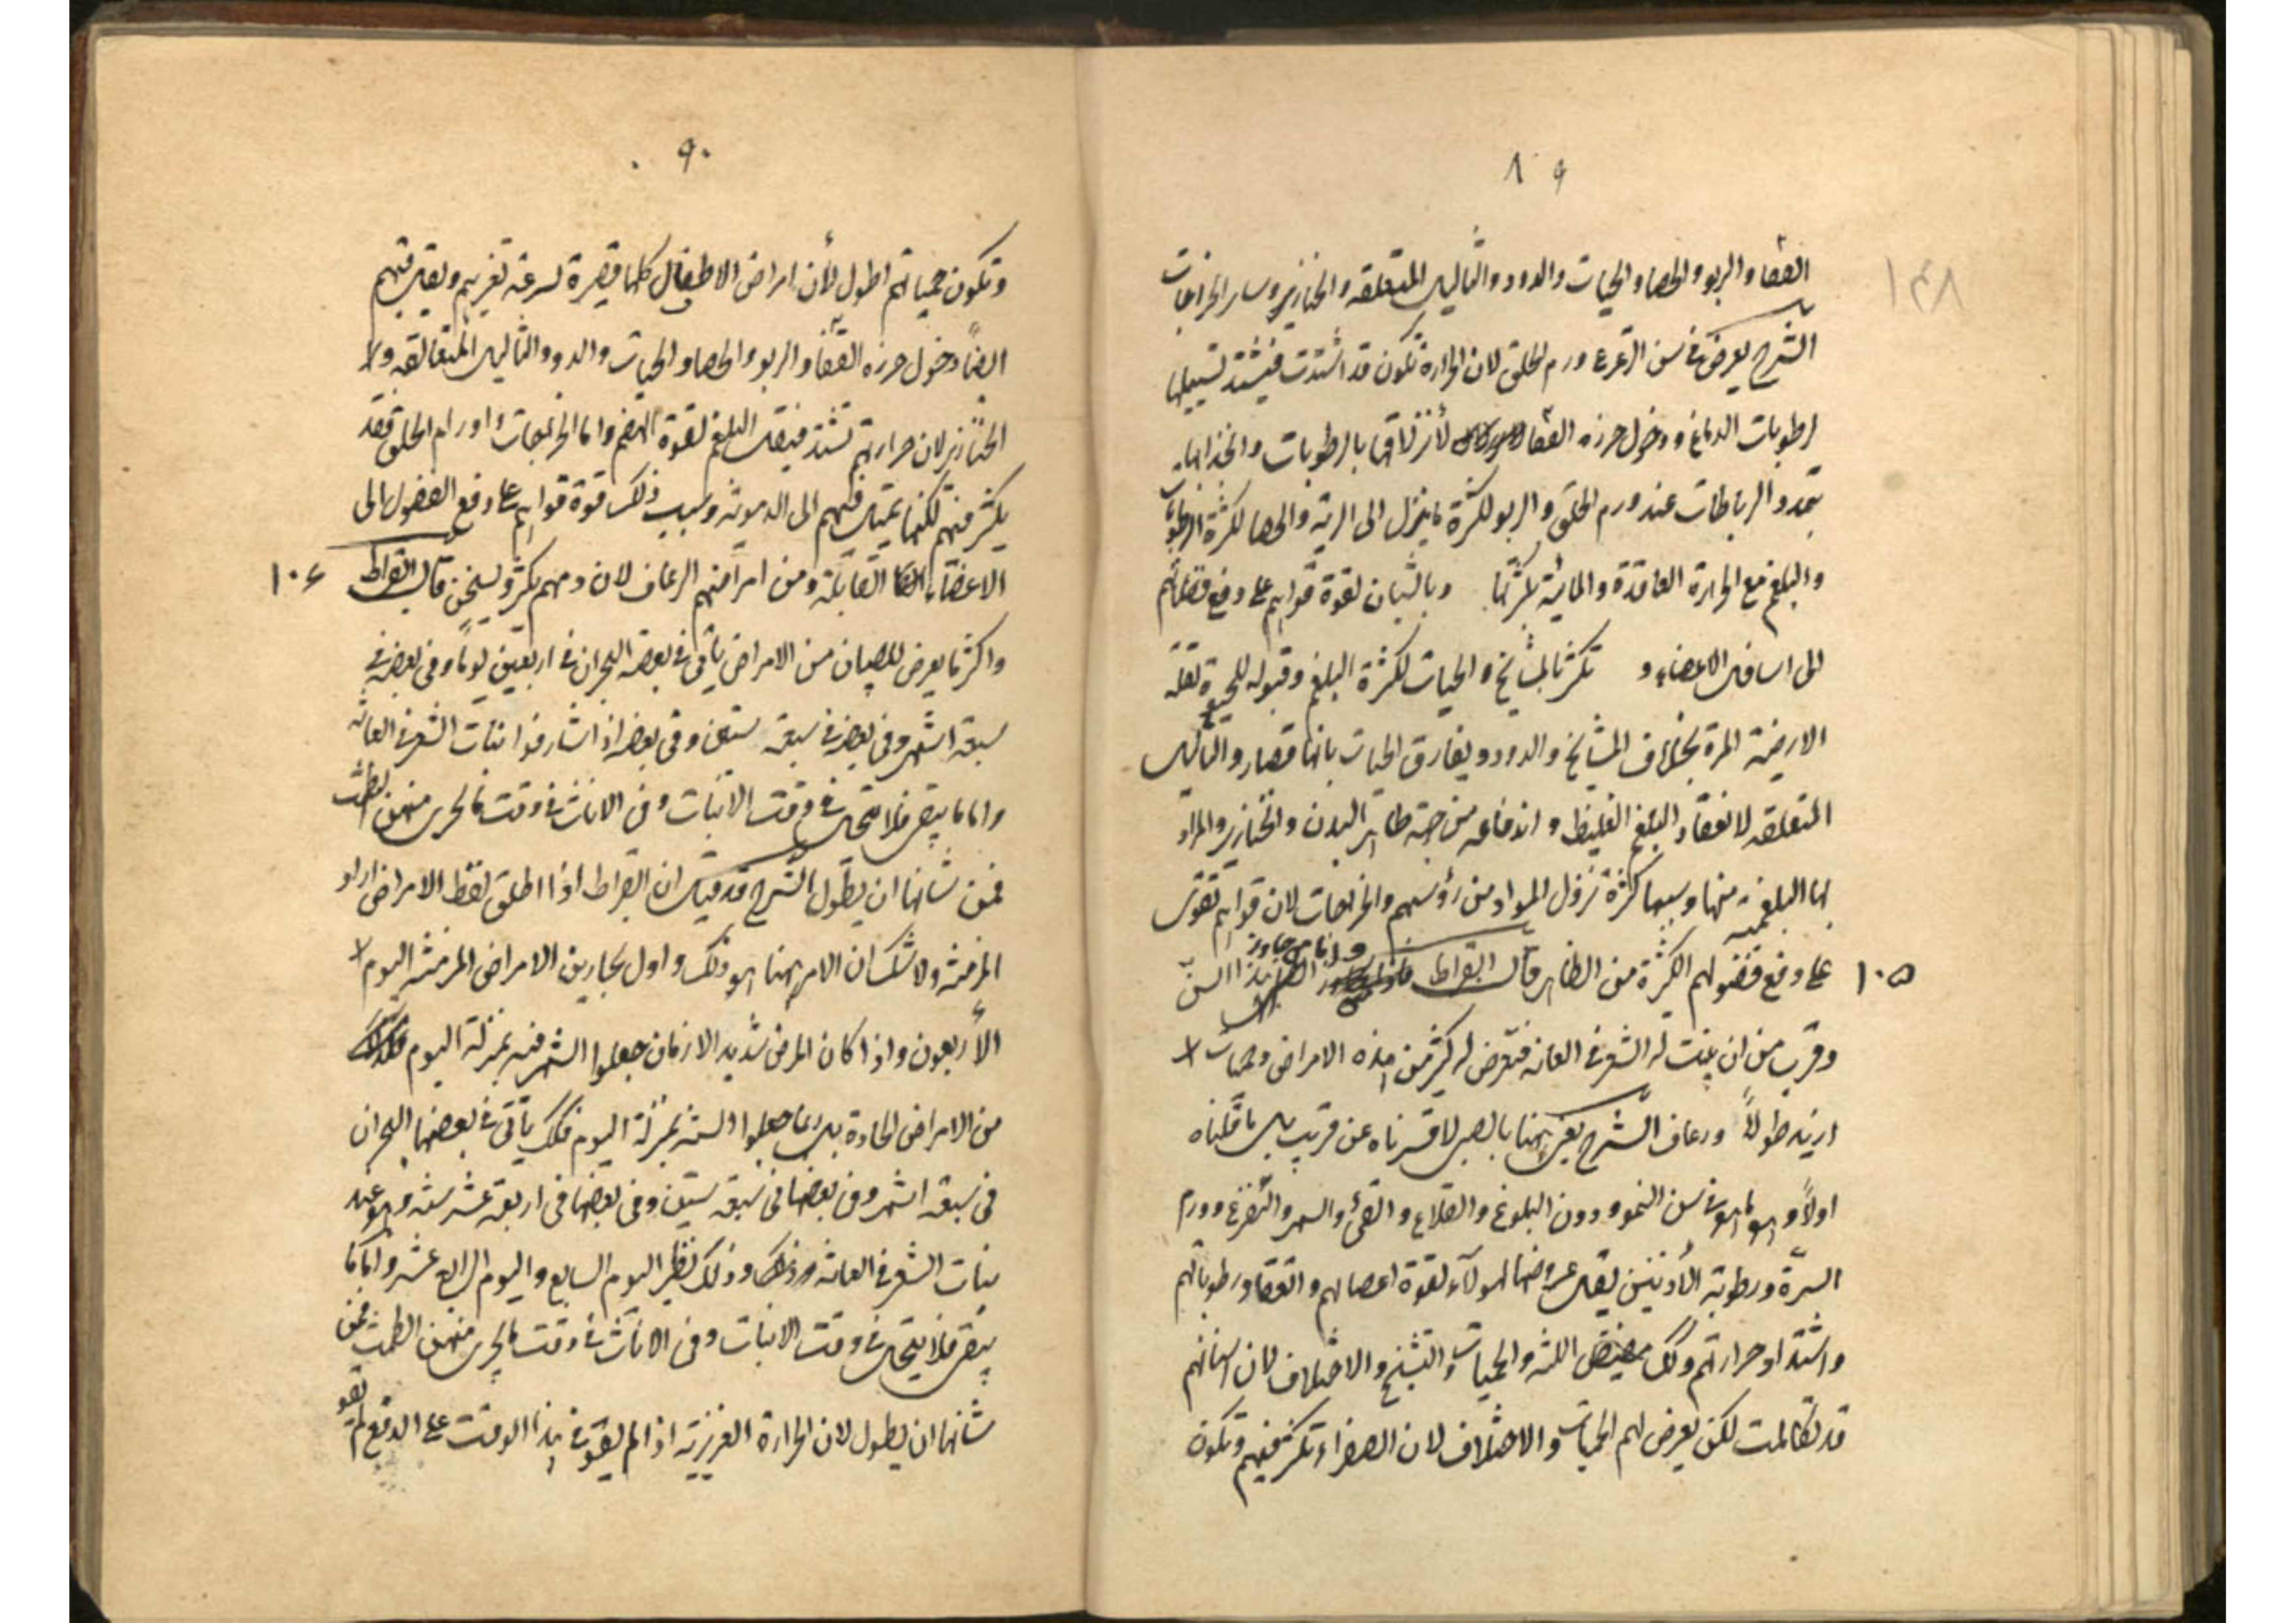 ٨٩
١٤٨
القفا والربو والحصا والحيات والدود والثآليل المتعلقه والخنازير وساير الخراجات
الشرح يعرض فى سن الترعرع ورم الحلق لان الحرارة تكون قد اشتدت فيشتد تسييلها
لرطوبات الدماغ ودخول خرزه القفا لانزلاقها بالرطوبات وانجذابها
بتمدد الرباطات عند ورم الحلق والربو لكثرة ما ينزل الى الرية والحصا لكثرة الرطوبات
والبلغم مع الحرارة العاقدة والمائية بكثرتها وبالشبان لقوة قواهم على دفع فضلاتهم
الى اسافل الاعضاء و تكثر بالمشايخ والحيات لكثرة البلغم وقبوله للحيوة لقلة
الارضية المرة بخلاف المشايخ والدود ويفارق الحيات بانها قصار والثآليل
المتعلقه لانعقاد البلغم الغليظ واندفاعه من جهة ظاهر البدن والخنازير والمراد
بها البلغمية منها وسببها كثرة نزول المواد من رؤسهم والخراجات لان قواهم تقوى
١٠٥ على دفع فضولهم الكثرة من الظاهر قال ابقراط واما من جاوز هذا السن
وقرب من ان ينبت له الشعر فى العانه فيعرض له كثير من هذه الامراض وحميات
ازيد طولاً ورعاف الشرح يعنى ههنا بالصبى لا قسرناه عن قريب بل ما قلناه
اولاً وهو ما هو فى سن النمو ودون البلوغ والقلاع والقئ والسهر والتفزع وورم
السرّة ورطوبة الأذنين يقل عروضها لهولآء لقوة اعصابهم والقفا ورطوباتهم
واشتداد حرارتهم وكك مضيض اللثه والحميات والتشنج والاختلاف لان اسنانهم
قد تكاملت لكن يعرض لهم الحميات والاختلاف لان الصفراء تكثر فيهم وتكون
٩٠
وتكون حمياتهم اطول لأن امراض الاطفال كلها قصيرة لسرعة تغريهم ويقل فيهم
ايضاً دخول خرزه القفا والربو والحصا والحيات والدود والثآليل المتعالقه ولا
الخنازير لان حرارتهم تشتد فيقل البلغم لقوة الهضم واما الخراجات واورام الحلق فقد
يكثر فيهم لكنها تميل فيهم الى الدموية وسبب ذلك قوة قواهم على دفع الفضول الى
الاعضاء القابلة ومن امراضهم الرعاف لان دمهم يكثر ويسخن قال ابقراط ١٠٦
واكثر ما يعرض للصبيان من الامراض يأتى فى بعضه البحران فى اربعين يوماً وفى بعضه فى
سبعة اشهر وفى بعضه فى سبعة سنين وفى بعضه اذا شارفوا نبات الشعر فى العانه
واما ما يبقى فلا ينحل فى وقت الانبات وفى الاناث فى وقت ما يجرى منهن الطمث
فمن شانها ان يطول الشرح قد قيل ان ابقراط اذا اطلق لفظ الامراض اراد
المزمنه ولا شك ان الامر ههنا هو ذلك واول بحارين الامراض المزمنه اليوم
الأربعون واذا كان المرض شديد الازمان جعلوا الشهر فيه بمنزلة اليوم
من الامراض الحادة بل ربما جعلوا السنه بمنزلة اليوم فكك يأتى فى بعضها البحران
فى سبعة اشهر وفى بعضها فى سبعة سنين وفى بعضها فى اربعة عشر سنه وهو عند
نبات الشعر فى العانه وذلك نظير اليوم السابع واليوم الرابع عشر واما ما
يبقى فلا ينحل فى وقت الانبات وفى الاناث فى وقت ما يجرى منهن الطمث فمن
شانها ان يطول لان الحرارة الغريزية اذا لم يقو فى هذا الوقت على الدفع لم تقو